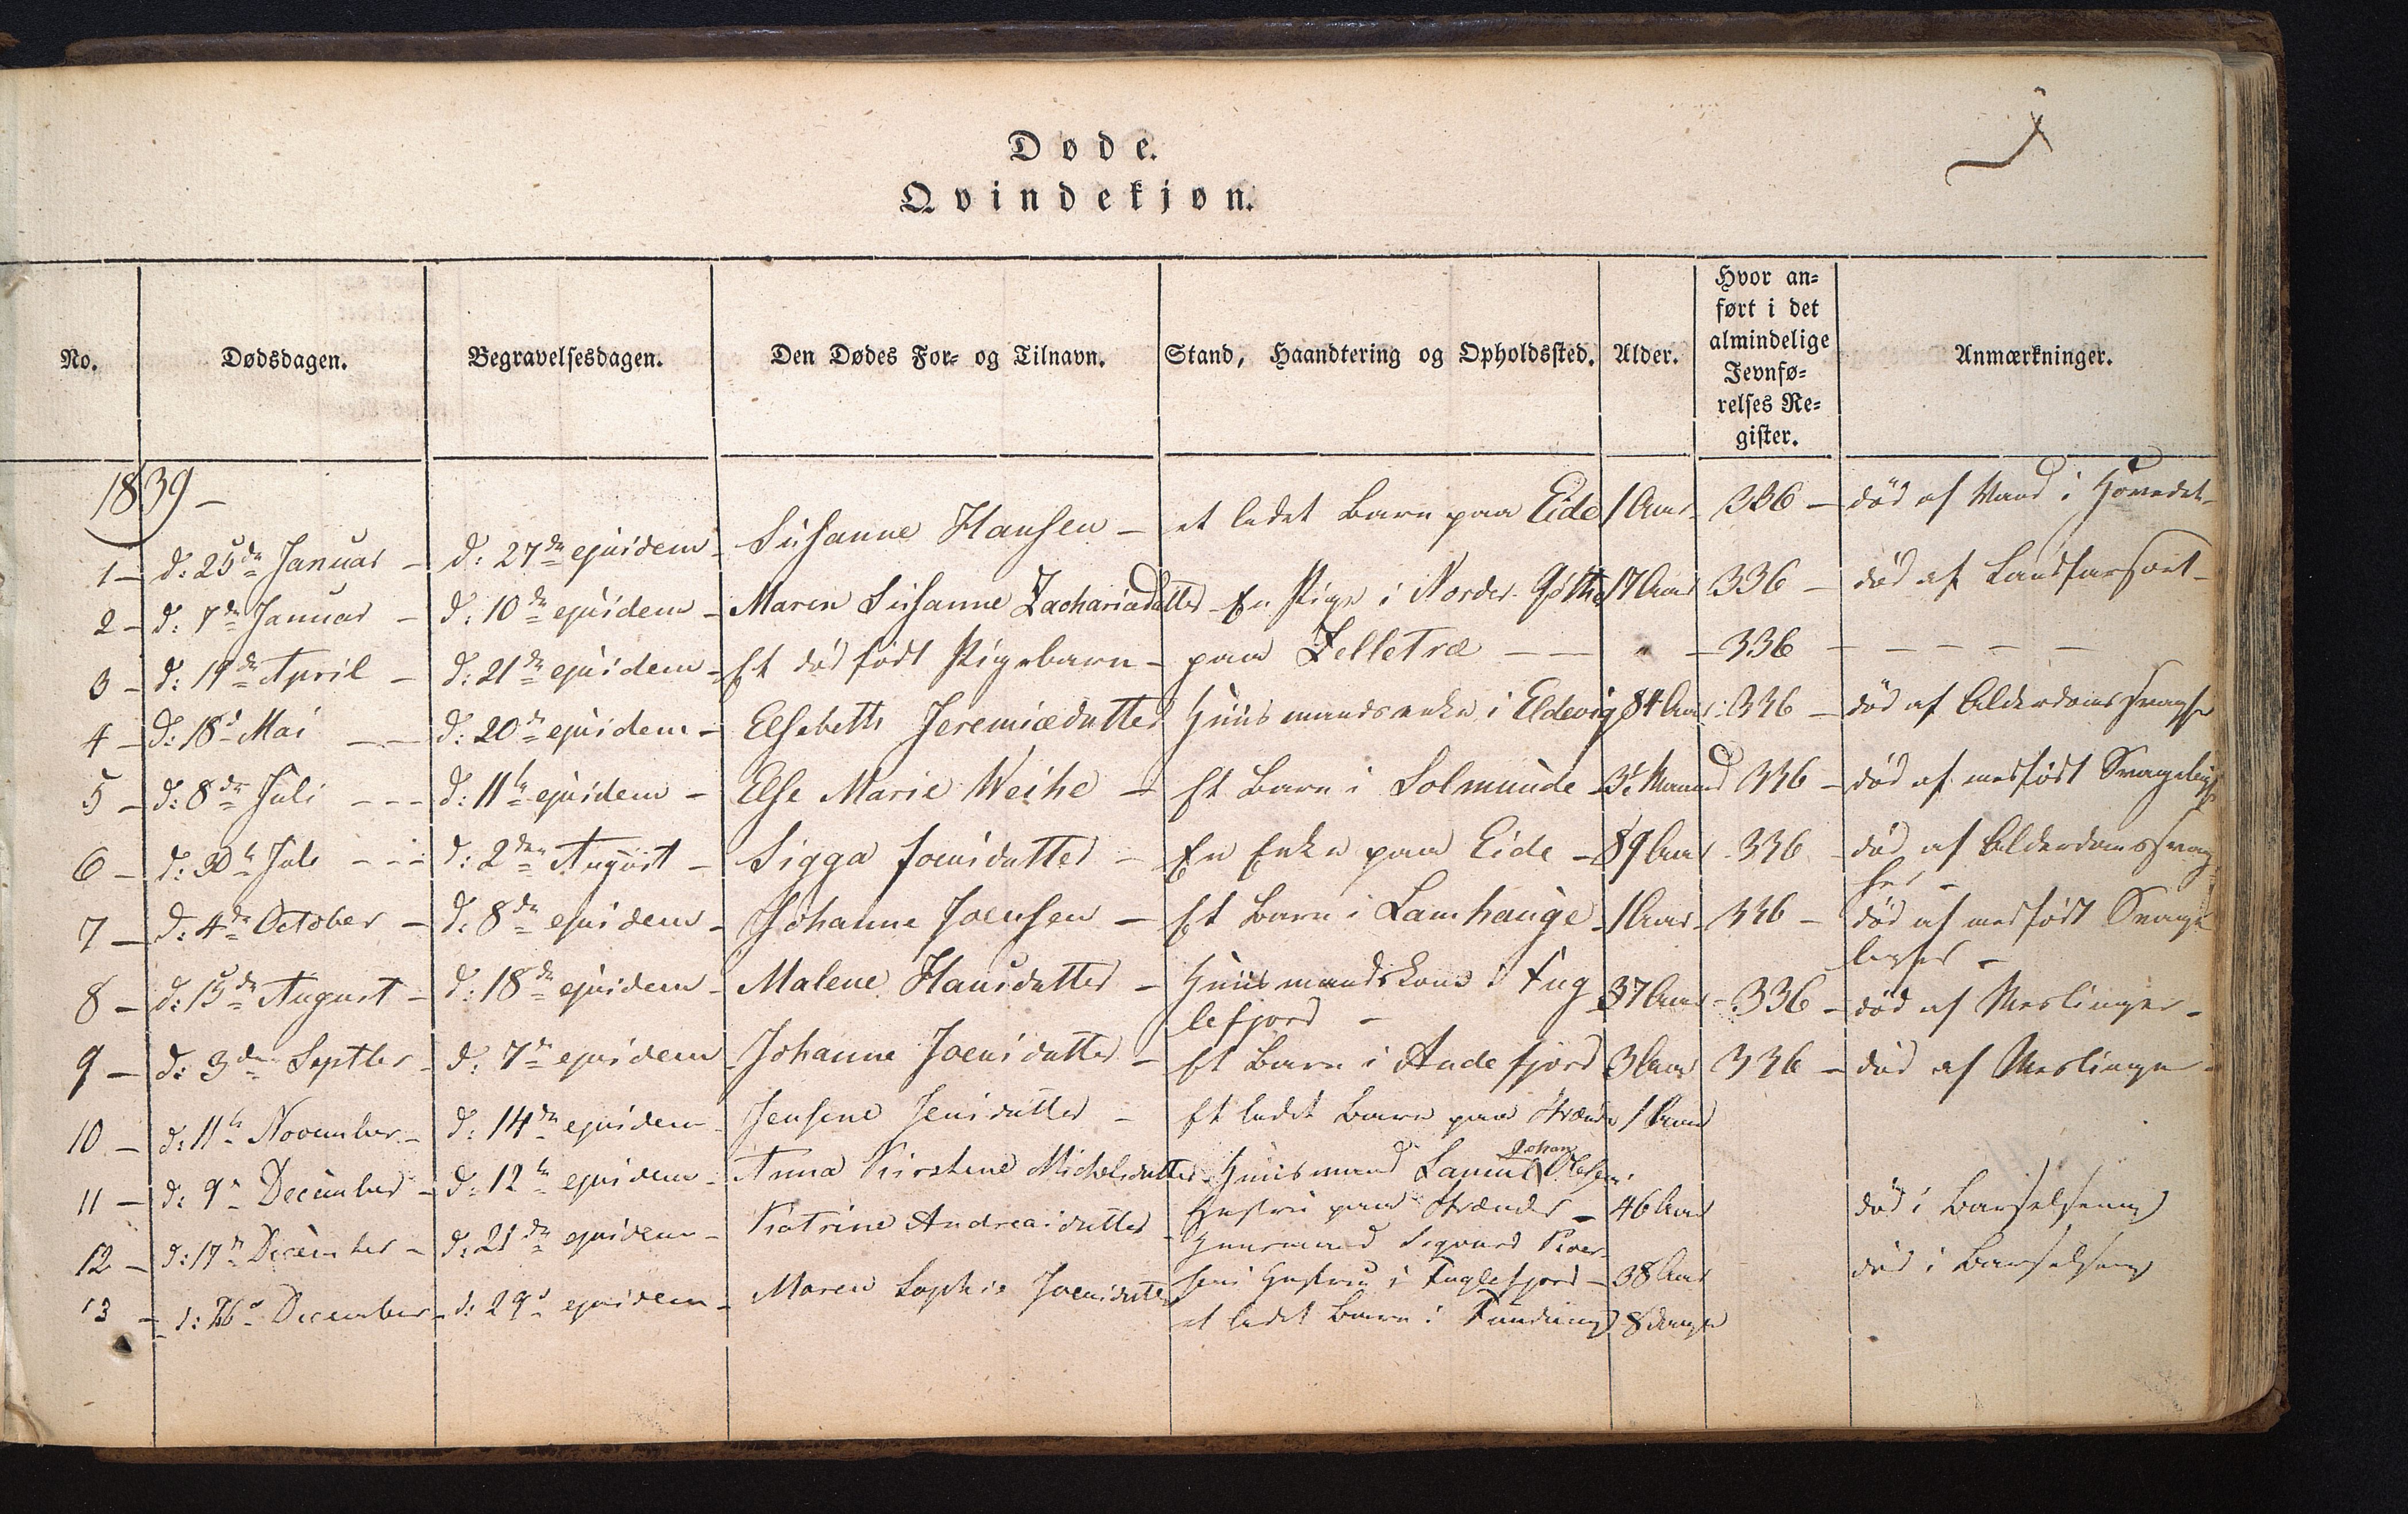 Døde.
Qvindekjøn.
No. Dødsdagen. Begravelsesdagen. Den Dødes For- og Tilnavn. Stand, Haandtering og Opholdssted. Alder. Hvor an-
ført i det
almindelige
Jevnfø-
relses Re-
gister. Anmærkninger.
1839 -
1 - d: 25de Januar - d: 27de ejusdem - Susanne Hansen - et ledet Barn paa Eide 1 Aar - 336 - død af Vand i Hovedet -
2 - d: 7de Januar - d: 10de ejusdem - Maren Susanne Zachariadatter - En Pige i Norder Gøthe 17 Aar 336 - død af Landfarsoet -
3 - d: 19de April - d: 21de ejusdem - Et dødfødt Pigebarn - paa Selletræ - - " - 336 - - - - -
4 - d: 18d Mai - - d: 20de ejusdem - Elsebeth Jeremiædatter Huusmandsenke i Eldevig 84 Aar: 336 - død af Alderdomssvaghe
5 - d: 8de Juli - - - d: 11te ejusdem - Else Marie Weihe - Et Barn i Solmunde - Maaned 336 - død af medfødt Svagelighe
6 - d: 30te Juli - - - d: 2den August - Sigga Joensdatter - En Enke paa Eide - 89 Aar - 336 - død af Alderdomssvag
hed -
7 - d: 4de October - d: 8de ejusdem - Johanne Joensen - Et Barn i Lamhauge - 1 Aar - 336 - død af medfødt Svage
lighed -
8 - d: 15de August - d: 18de ejusdem - Malene Hansdatter - Huusmandskone i Fug
lefjord - 37 Aar - 336 - død af Meslinger -
9 - d: 3die Septbr - d: 7de ejusdem - Johanne Joensdatter - Et Barn i Andefjord 3 Aar 336 - død af Meslinger -
10 - d: 11te November - d: 14de ejusdem - Jensine Jensdatter - Et ledet Barn paa Strænder 1 Aar
11 - d: 9de December - d: 12te ejusdem - Anna Kirstine Michelsdatter - Huusmand Samuel Johan Olesens
Hustru paa Strænder - 46 Aar død i Barselseng
12 - d: 17de December - d: 21de ejusdem - Katrine Andreasdatter - Huusmand Sigvard Poul-
sens Hustru i Fuglefjord - 38 Aar død i Barselseng
13 - d: 26de December - d: 29de ejusdem - Maren Sophie Joensdatter et ledet Barn i Funding 8 Dage